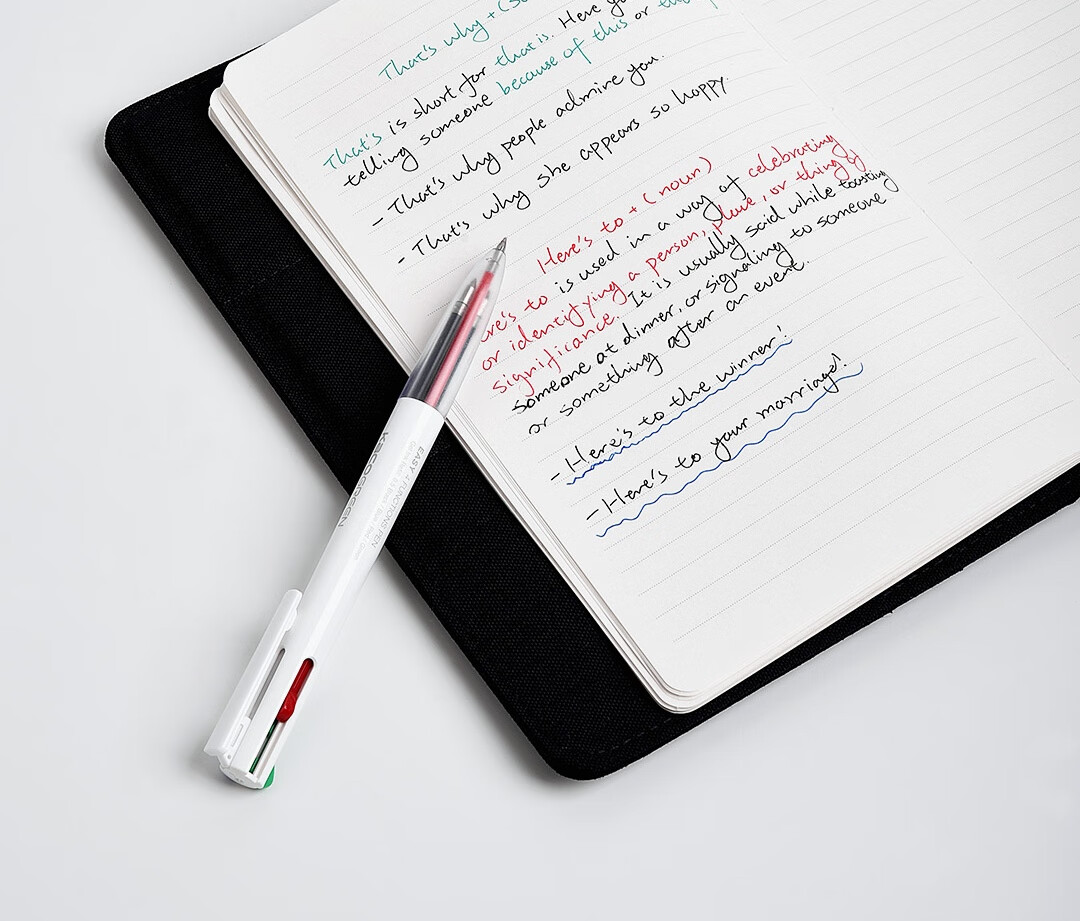 That's why + (
That's is short for that is. Here
telling someone because of this or
- That's why people admire you.
- That's why she appears so happy.
Here's to + (noun)
ere's to is used in a way of celebrating
or identifying a person, place, or thing of
significance. It is usually said while toasting
someone at dinner, or signaling to someone
or something after an event.
- Here's to the winner!
- Here's to your marriage!
KACOGREEN
EASY 4 FUNCTIONS PEN